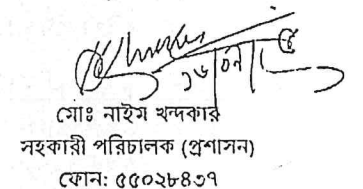 মোঃ নাইম খন্দকার
সহকারী পরিচালক (প্রশাসন)
ফোন: ৫৫০২৮৪৩৭